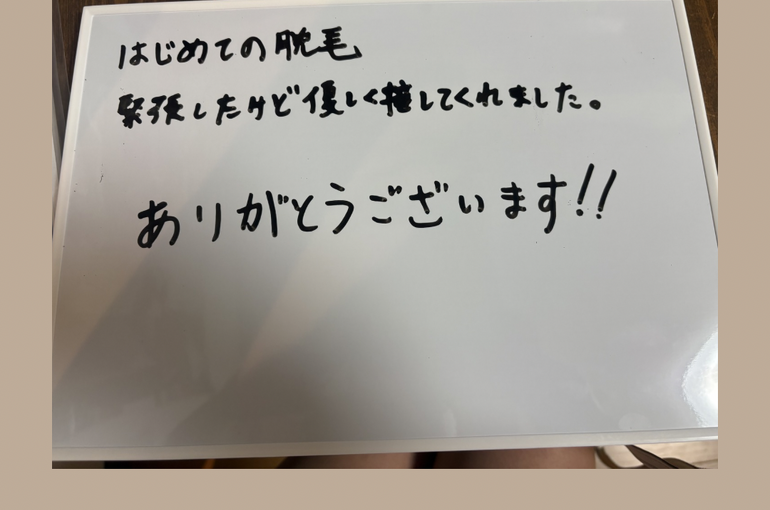 はじめての脱毛
緊張したけど優しく接してくれました。
ありがとうございます!!